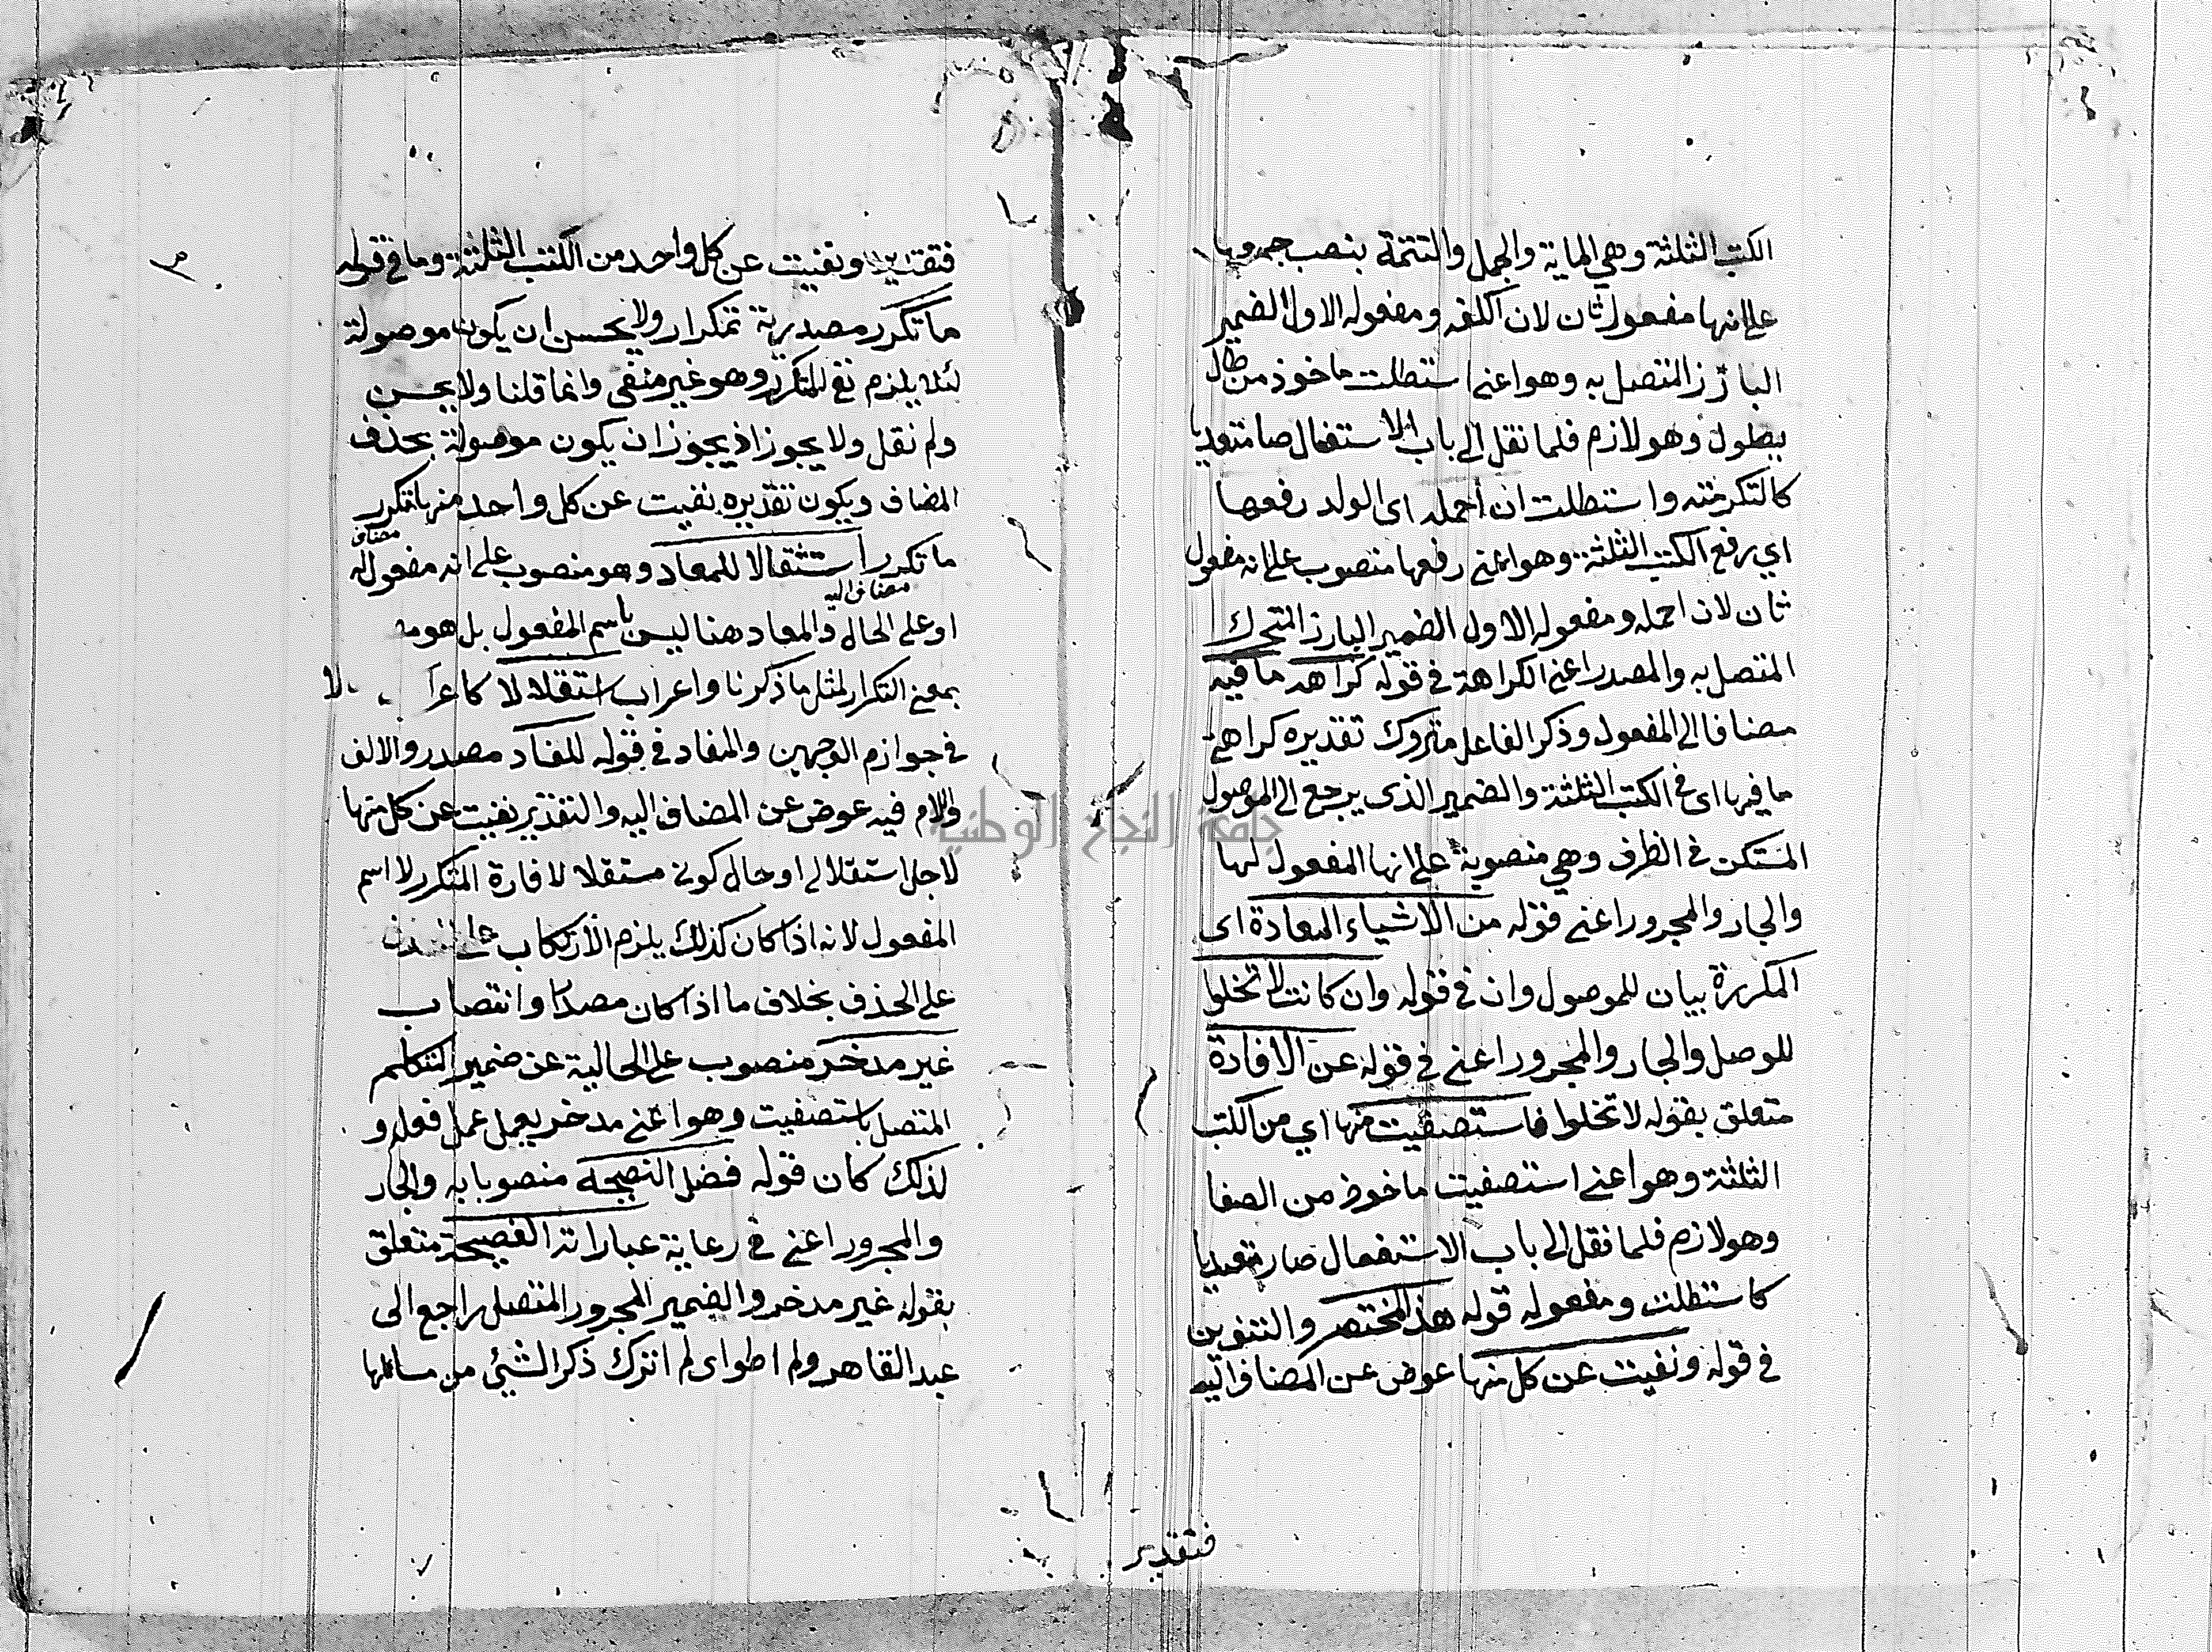 الكتب الثلثة وهي الماية والجمل والتتمة بنصب جمعها
على انها مفعول ثان لان اكلفه ومفعوله الاول الضمير
البارز المتصل به وهو اعني استطلت ماخوذ من طال
يطول وهو لازم فلما نقل الى باب الاستفعال صار متعديا
واستطلت ان احمله اى الولد رفعها
اي رفع الكتب الثلثة وهو اعني رفعها منصوب على انه مفعول
ثان لان احمله ومفعوله الاول الضمير البارز المتحرك
المتصل به والمصدر اعني الكراهة في قوله كراهة ما فيه
مضافا الى المفعول وذكر الفاعل متروك تقديره كراهتي
ما فيها اى في الكتب الثلثة والضمير الذى يرجع الى الموصول
المستكن في الظرف وهي منصوبة على انها المفعول لها
والجار والمجرور اعني قوله من الاشياء المعادة اى
المكررة بيان للموصول وان في قوله وان كانت لا تخلوا
للوصل والجار والمجرور اعني في قوله عن الافادة
متعلق بقوله لا تخلوا فاستصفيت منها اي من الكتب
الثلثة وهو اعني استصفيت ماخوذ من الصفا
وهو لازم فلما نقل الى باب الاستفعال صار متعديا
كاستطلت ومفعوله قوله هذا المختصر والتنوين
في قوله ونفيت عن كل منها عوض عن المضاف اليه
فتقدير
٣
فتقديره ونفيت عن كل واحد من الكتب الثلثة وما في قوله
ما تكرر مصدرية تكرار ولا يحسن ان يكون موصولة
لئلا يلزم نفي المتكرر وهو غير منفى وانما قلنا ولا يحسن
ولم نقل ولا يجوز اذ يجوز ان يكون موصولة بحذف
المضاف ويكون تقديره نفيت عن كل واحد منها تكرر
مضاف
ما تكرر استثقالا للمعاد وهو منصوب على انه مفعول له
مضاف اليه
او على الحال والمعاد هنا ليس باسم المفعول بل هو
بمعنى التكرار لمثل ما ذكرنا واعراب استقلالا
في جوازم الوجهين والمفاد في قوله للمفاد مصدر والالف
واللام فيه عوض عن المضاف اليه والتقدير نفيت عن كل منها
لاجل استقلالى او حال كوني مستقلا لافادة المتكرر لا اسم
المفعول لانه اذا كان كذلك يلزم الارتكاب
على الحذف بخلاف ما اذا كان مصدرا وانتصاب
غير مدخر منصوب على الحالية عن ضمير المتكلم
المتصل باستصفيت وهو اعني مدخر يعمل عمل فعله و
لذلك كان قوله فضل النصيحة منصوبا به والجار
والمجرور اعني في رعاية عباراته الفصيحة متعلق
بقوله غير مدخر والضمير المجرور المتصل راجع الى
عبد القاهر ولم اطو اى لم اترك ذكر الشيئ من مسائلها
جامعة النجاح الوطنية